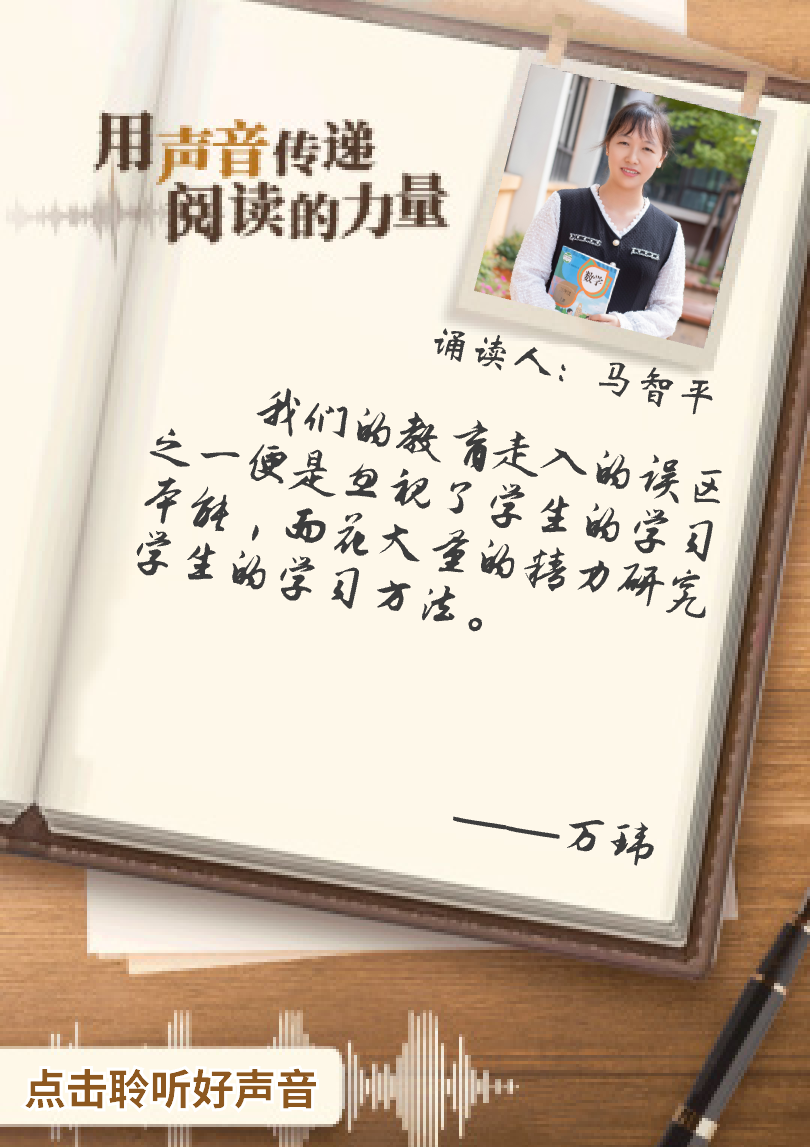 用声音传递
阅读的力量
数学
诵读人：马智平
我们的教育走入的误区
之一便是忽视了学生的学习
本能，而花大量的精力研究
学生的学习方法。
——万玮
点击聆听好声音